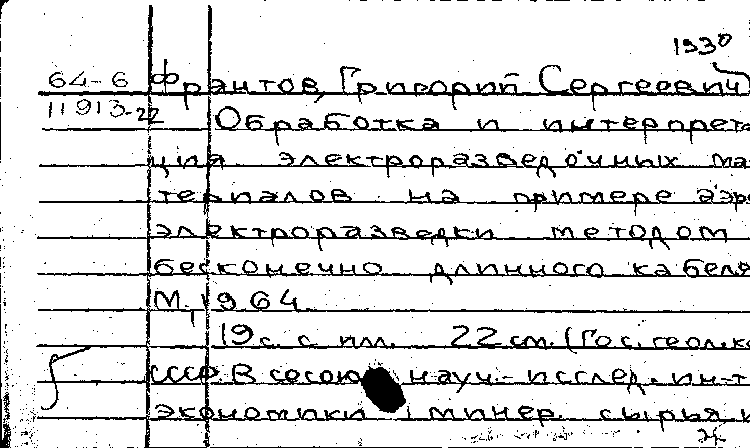 1930
64-6 Франтов, Григорий Сергеевич
11913-22 Обработка и интерпрета
ция электроразведочных ма
териалов на примере аэро
электроразведки методом
бесконечно длинного кабеля
М., 1964
19 с. с илл. 22 см. (Гос. геол. ко
СССР. Всесоюз науч.-исслед. ин-т
экономики минер. сырья и